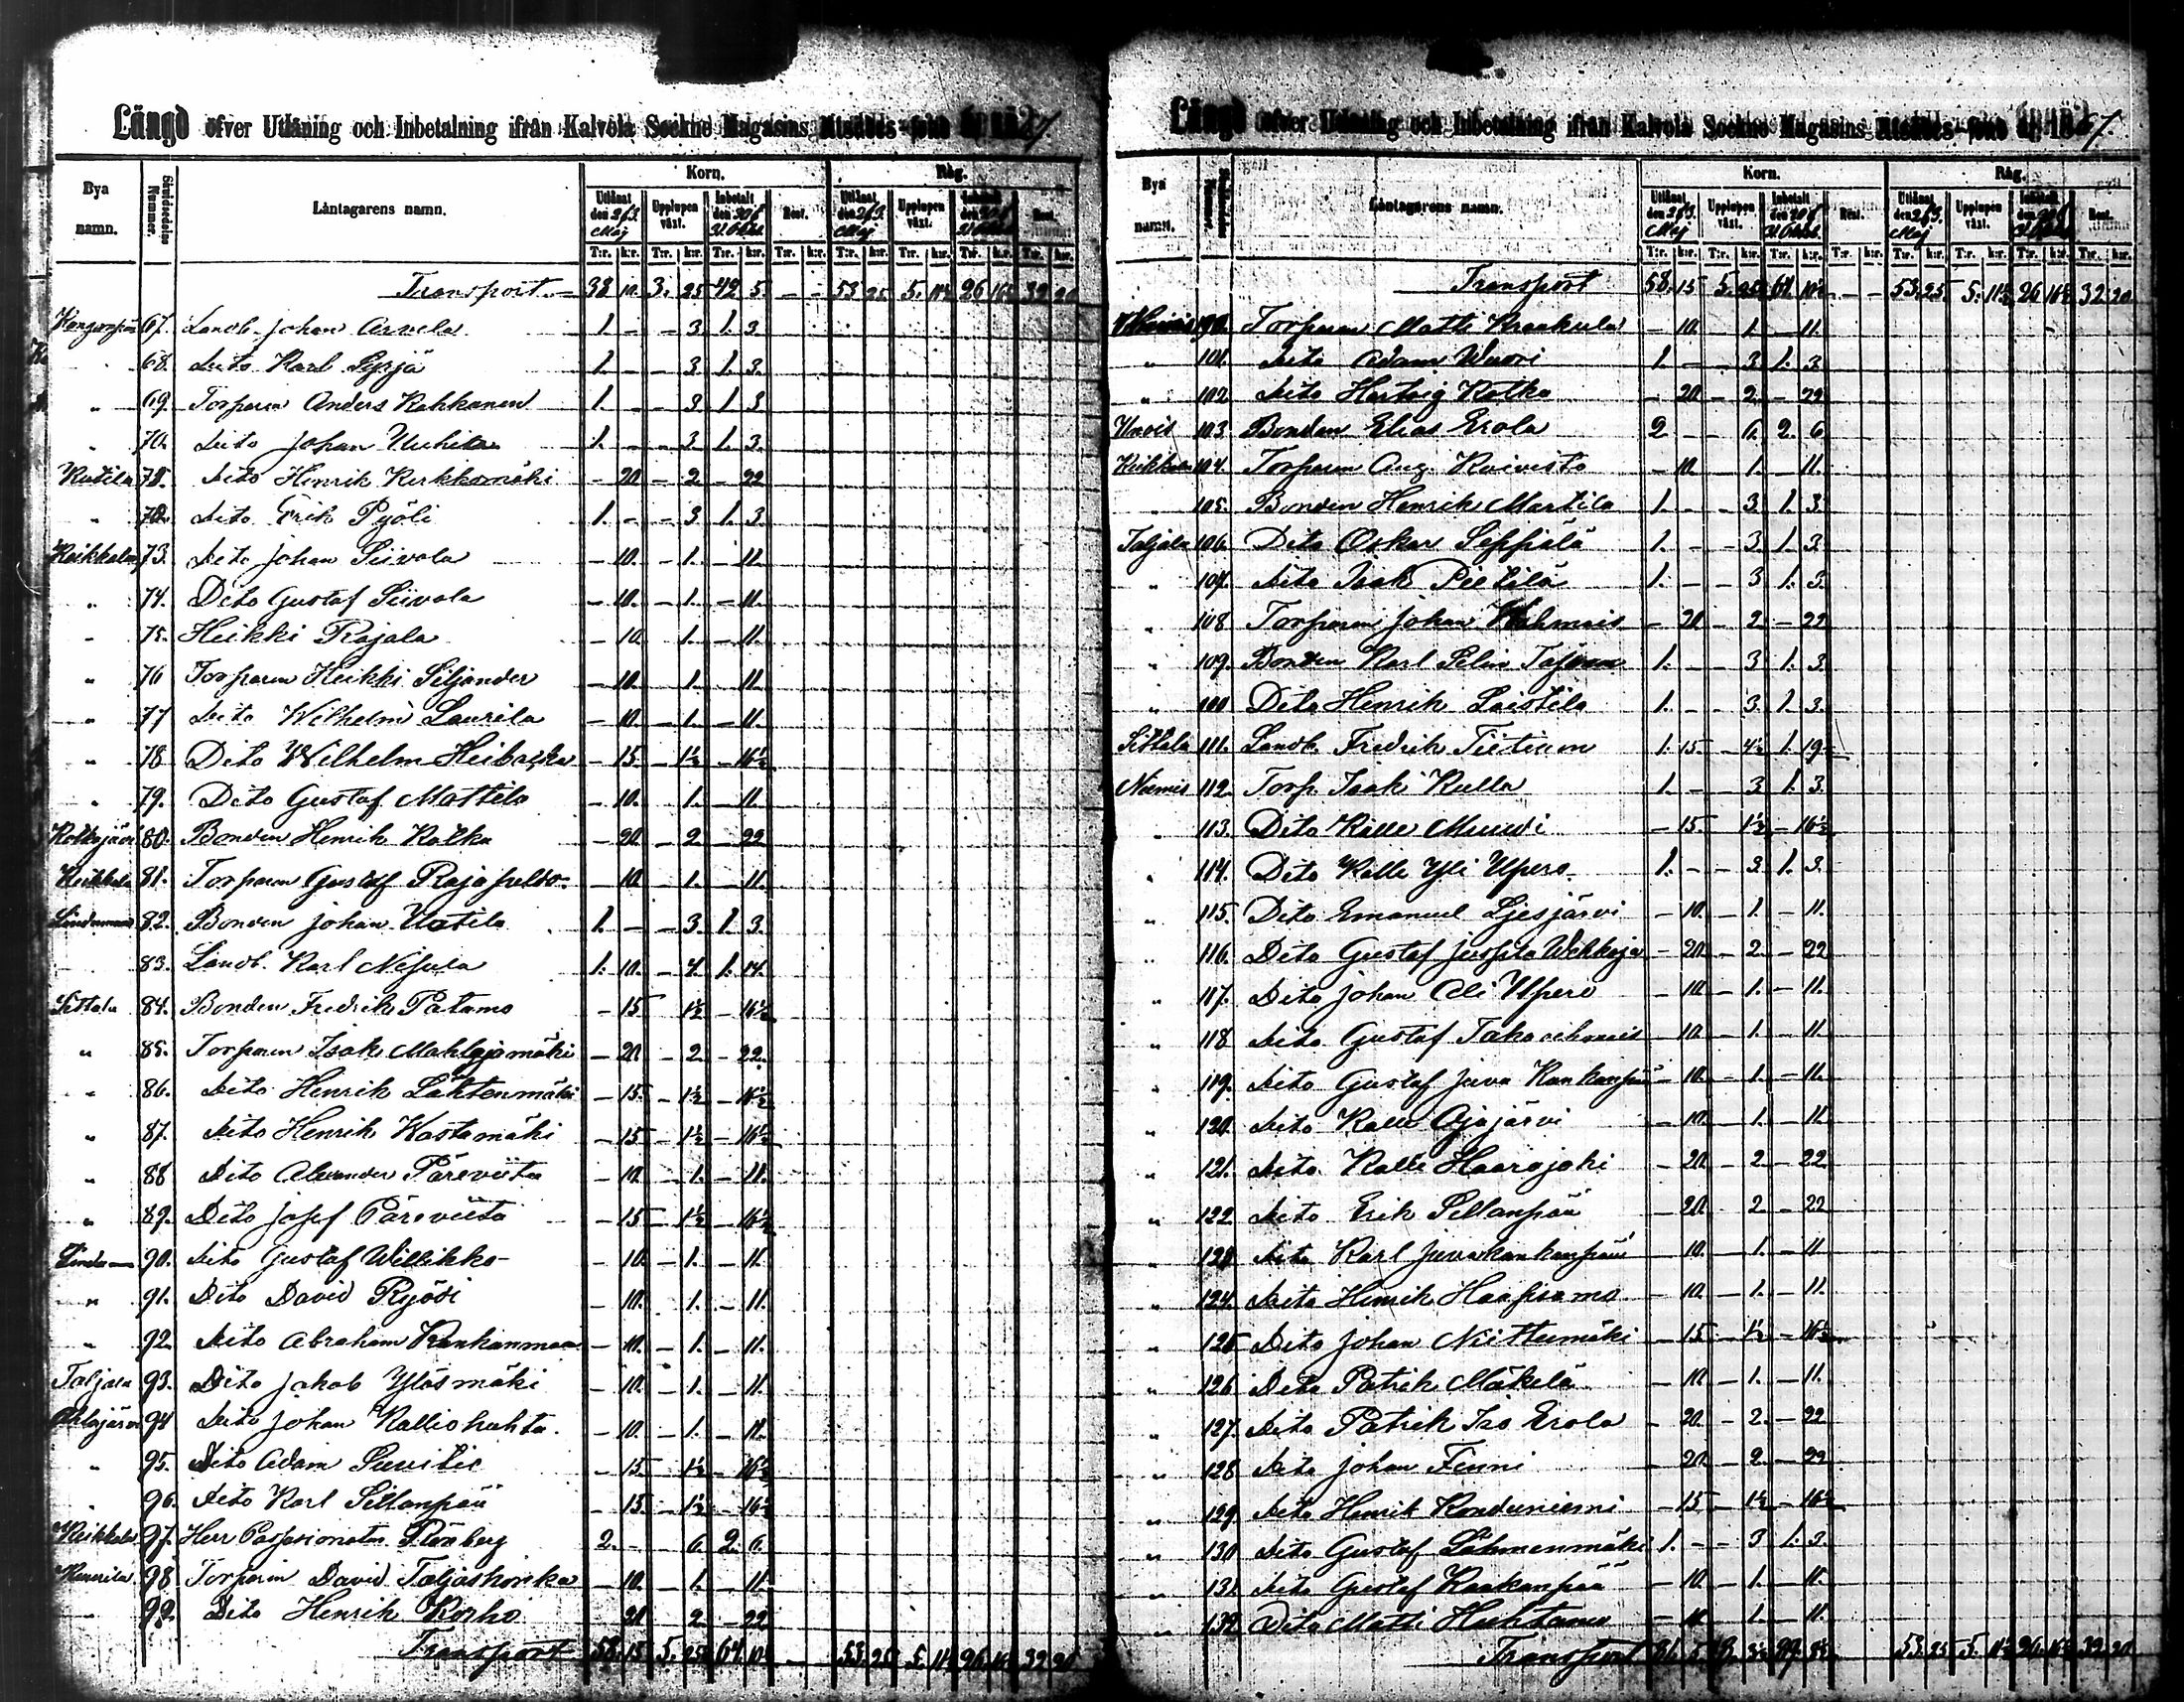 Längd öfver Utlåning och Inbetalning ifrån Kalvola Sockne Magasins
Bya namn. Låntagarens namn. Korn. Råg.
Utlånt den 26 J. Maj Upplupen växt. Inbetalt den Rest. Utlånt den 26 J. Maj Upplupen växt. Rest.
T:r. k:r. T:r. k:r. T:r. k:r. T:r. k:r. T:r. k:r. T:r. k:r. T:r. k:r. T:r. k:r.
Transport 38 10. 3. 25 42 5. - - 53 25 5. 11½ 26 16½ 32 20
67. Landb. Johan Arvela 1. - - 3. 1. 3
" 68. Dito Karl Syrjä 1. - - 3. 1. 3.
" 69. Torparen Anders Kahkonen 1. - - 3 1. 3
" 70. Dito Johan 1. - - 3. 1. 3.
Kutila Dito Henrik Kirkkomäki - 20 - 2 - 22
" 72. Dito Erik Pyöli 1. - - 3 1. 3.
Keikkala 73. Dito Johan Siivola - 10. - 1. - 11.
" 74. Dito Gustaf Siivola - 10. - 1. - 11.
" 75. Heikki Rajala - 10. 1. - 11.
" 76 Torparen Heikki Siljander - 10. - 1. - 11.
" 77 Dito Wilhelm Laurila - 10. - 1. - 11.
" 78 Dito Wilhelm - 15. - 1½ - 16½
" 79. Dito Gustaf Mattila - 10. - 1. - 11.
Kotkajärvi 80. Bonden Henrik Kotka - 20 - 2 - 22
Keikkala 81. Torparen Gustaf Rajapelto - 10. - 1. - 11.
82. Bonden Johan Uotila 1. - - 3. 1. 3.
83. Landb. Karl Nipula 1. 10. - 4 1. 14.
Sittala 84. Bonden Fredrik Patamo - 15 1½ - 16½
" 85. Torparen Isak Mahlajamäki - 20 - 2 - 22.
" 86. Dito Henrik Lähtenmäki - 15. - 1½ - 16½
" 87. Dito Henrik Kostamäki - 15 - 1½ - 16½
" 88 Dito Alexander Päreviita - 10. - 1. - 11.
" 89. Dito Josef Päreviita - 15 - 1½ - 16½
90. Dito Gustaf Willikko - 10. - 1. - 11.
" 91. Dito David Ryödi - 10. 1. - 11.
" 92. Dito Abraham Kankanmaa - 10. - 1. - 11.
Taljala 93. Dito Jakob Ylösmäki - 10. - 1. - 11.
94 Dito Johan Kalliohuhta. - 10. - 1. - 11.
" 95. Dito Adam - 15. - 1½ - 16½
" 96. Dito Karl Sillanpää - 15. - 1½ - 16½
Keikkala 97. Herr 2. - 6. 2. 6.
98 Torparen David Taljaskorka - 10. - 1. - 11.
" 99. Dito Henrik Korho 20. 2. - 22
Transport 58. 15 5. 25½ 64 10½ - 53. 25 5. 11½ 26 16½ 32 20
Längd öfver Utlåning och Inbetalning ifrån Kalvola Sockne Magasins
Bya namn. Låntagarens namn. Korn. Råg.
Utlånt den 26 J. Maj Upplupen växt. Inbetalt den Rest. Utlånt den 26 J. Maj Upplupen växt. Rest.
T:r. k:r. T:r. k:r. T:r. k:r. T:r. k:r. T:r. k:r. T:r. k:r. T:r. k:r. T:r. k:r.
Transport 58. 15 5. 25½ 64 10½ - - 53. 25. 5. 11½ 26 16½ 32 20
Torparen Matti Kraakula - 10. - 1. - 11.
" 101. Dito Adam Wuori 1. - - 3 1. 3
" 102. Dito Hartvig Kotka - 20 - 2 - 22
103. Bonden Elias Erola 2 - - 6. 2. 6
Keikkala 104. Torparen Aug. Koivisto - 10 - 1. - 11.
" 105. Bonden Henrik Martila 1. - - 3. 1. 3.
Taljala 106. Dito Oskar Seppälä 1. - - 3. 1. 3.
" 107. Dito Isak Pietilä 1. - - 3 1. 3.
" 108 Torparen Johan - 20. - 2 - 22
" 109. Bonden Karl 1. - - 3 1. 3
" Dito Henrik Laistila 1. - - 3. 1. 3.
Sittala 111. Landb. Fredrik Tiitinen 1. 15. - 4½ 1. 19½
Niemis 112. Torp. Isak Kulla 1. - - 3 1. 3.
" 113. Dito Kalle - 15. - 1½ - 16½
" 114. Dito Kalle Yli Upero 1. - - 3 1. 3.
" 115. Dito Emanuel Ljesjärvi - 10. - 1. - 11.
" 116. Dito Gustaf - 20. - 2 - 22
" 117. Dito Johan Ali Upero - 10. - 1. - 11.
" 118. Dito Gustaf - 10. - 1. - 11.
" 119. Dito Gustaf Juva Kankanpää - 10. - 1. - 11.
" 120. Dito Kalle Ojajärvi - 10. - 1. - 11.
" 121. Dito Kalle Haarajoki - 20. - 2 - 22
" 122 Dito Erik Sillanpää - 20. 2 - 22
" 123 Dito Karl Juvakankanpää - 10. - 1. - 11
" 124. Dito Henrik Haapsamo - 10. - 1. - 11.
" 125 Dito Johan Niittumäki - 15. - 1½ - 16½
" 126. Dito Patrik Mäkelä - 10 - 1. - 11.
" 127. Dito Patrik Iso Erola - 20. - 2. - 22
" 128. Dito Johan Finni - 20. - 2. - 22
" 129. Dito Henrik Konduniemi - 15 - 1½ - 16½
" 130 Dito Gustaf Lähmenmäki 1. - - 3 1. 3.
" 131. Dito Gustaf Kaakanpää - 10. - 1. - 11.
" 132. Dito Matti Huhtamo - 10 - 1. - 11.
Transport 53. 25 5. 11½ 26. 16½ 32 20